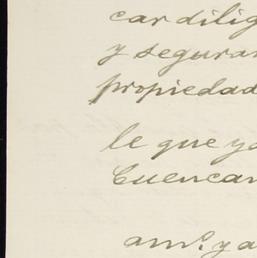 car dilig
y seguram
propiedad
le que ya
Cuencam
am.º y a